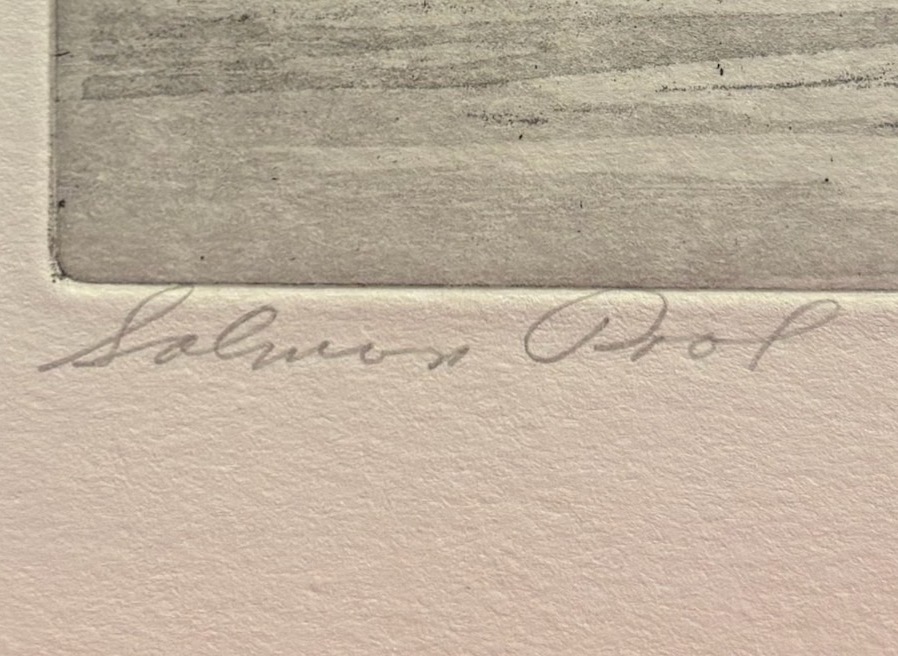 Salmon Pool